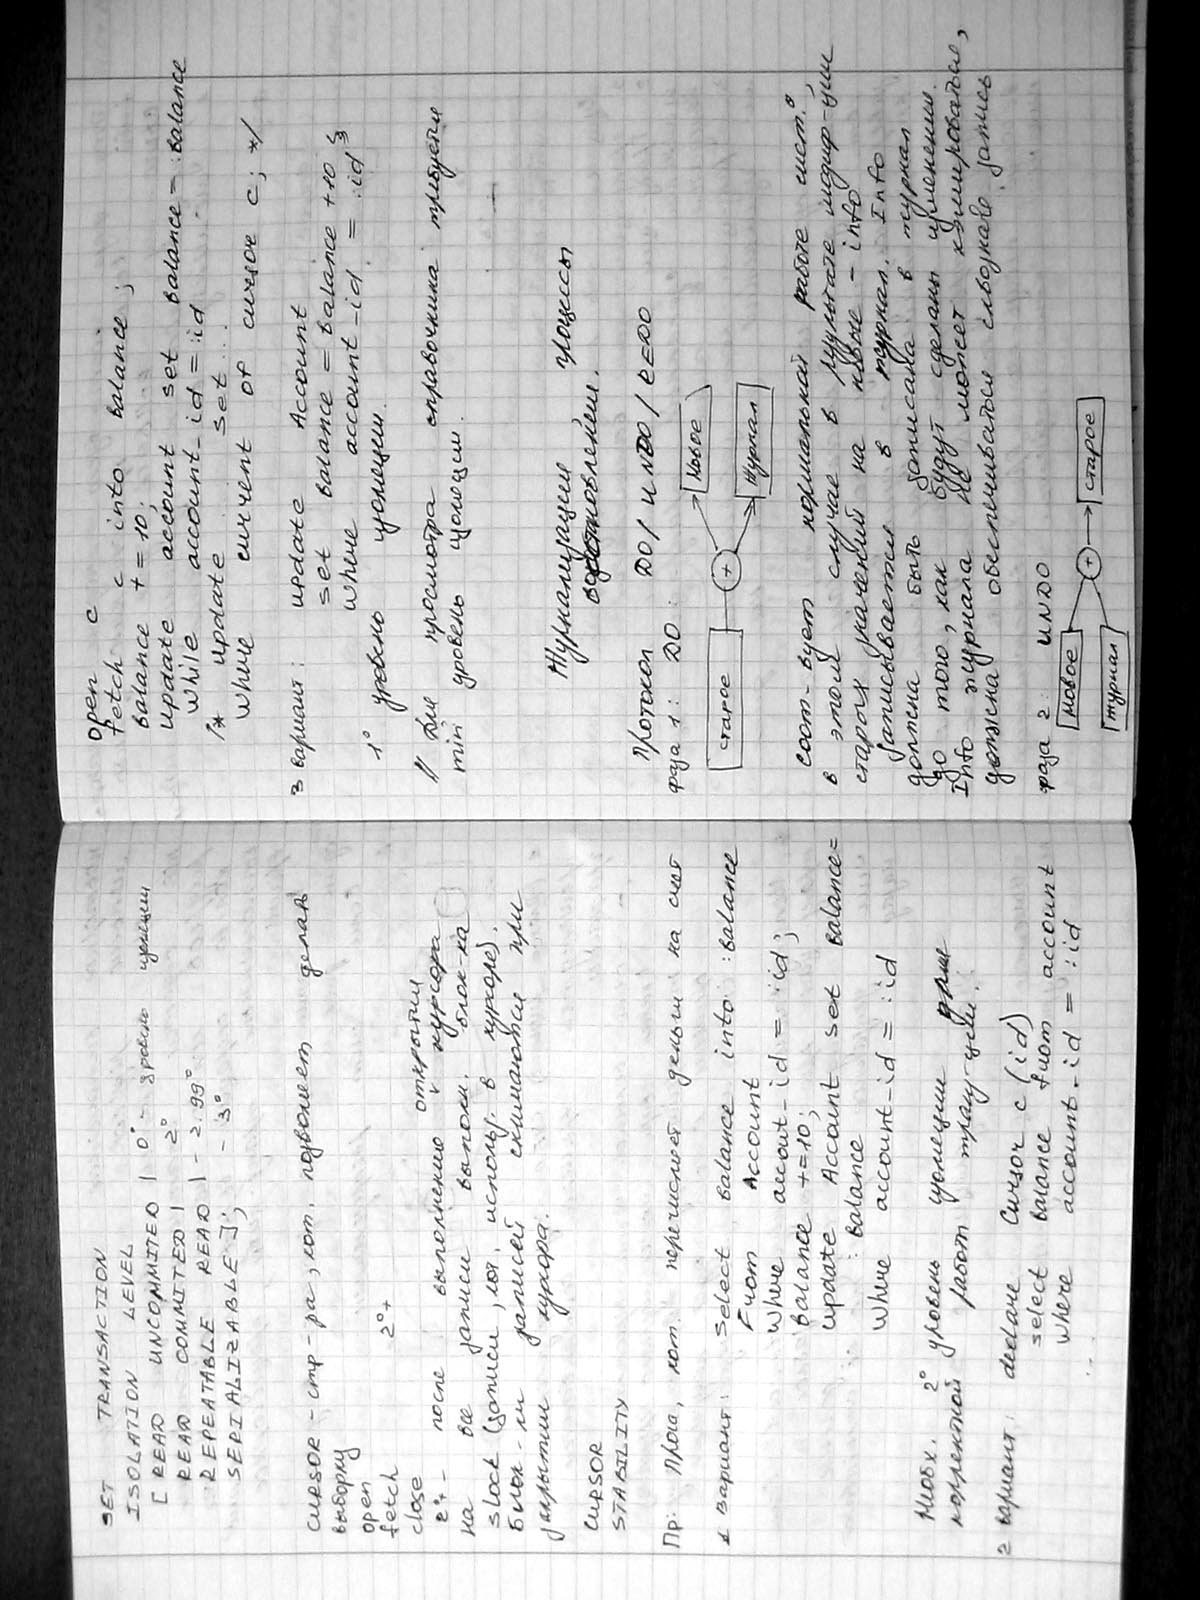 SET TRANSACTION
ISOLATION LEVEL
[ READ UNCOMMITED | 0° - уровень изоляции
READ COMMITED | 2°
REPEATABLE READ | - 2.99°
SERIALIZABLE ]; - 3°
CURSOR - стр-ра, кот. позволяет делать
выборку
open
fetch 2°+
close
2°+ - после выполнению открытии курсора
на все записи выполн. блок-ка
slock (записи, кот. использ. в курсоре).
Блок-ки записей снимаются при
закрытии курсора.
CURSOR
STABILITY
Пр: Прога, кот. перечисляет деньги на счет
1 вариант: select balance into :balance
From Account
Where accout_id = :id;
balance +=10;
update Account set balance=
:balance
Where account_id = :id
Необх. 2° уровень изоляции для
корректной работ транз-ции.
2 вариант: declare Cursor c (id)
select balance from account
where account_id = :id
...
open c
fetch c into balance;
balance +=10;
update account set balance=:balance
while account_id = :id
/* update set...
where current of cursor c; */
3 вариант: update Account
set balance = balance +10
where account_id = :id
1° уровень изоляции.
// Для просмотра справочника требуется
min уровень изоляции.
Журнализация, процессы
восстановления.
Протокол DO / UNDO / REDO
фаза 1: DO:
старое
+
новое
журнал
соот-вует нормальной работе сист.
в этом случае в результате модиф-ции
старых значений на новые - info
записывается в журнал. Info
должна быть записана в журнал
до того, как будут сделаны изменения.
Info журнала не может кэшироваться,
должна обеспечиваться сквозная запись
фаза 2: UNDO
новое
журнал
+
старое